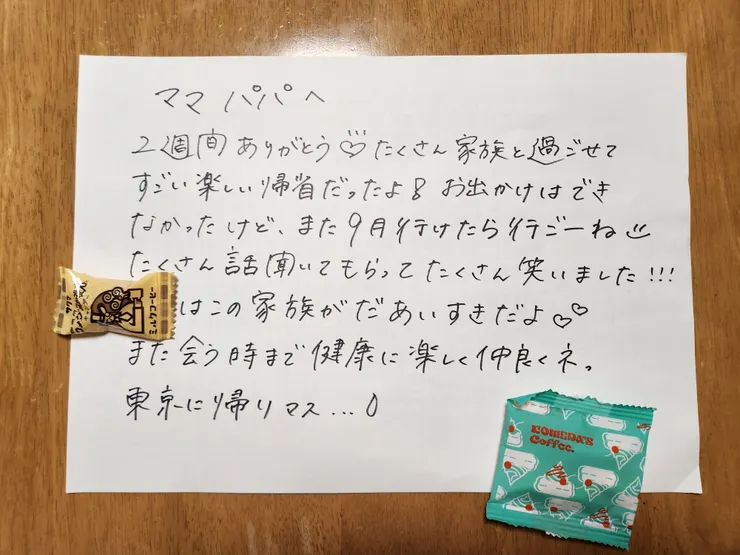 ママ パパへ
2週間ありがとう♡たくさん家族と過ごせて
すごい楽しい帰省だったよ お出かけはでき
なかったけど、また9月行けたら行こーね
たくさん話聞いてもらってたくさん笑いました!!!
はこの家族がだあいすきだよ♡♡
また会う時まで健康に楽しく仲良くネ。
東京に帰りマス...
KOMEDA'S
Coffee.